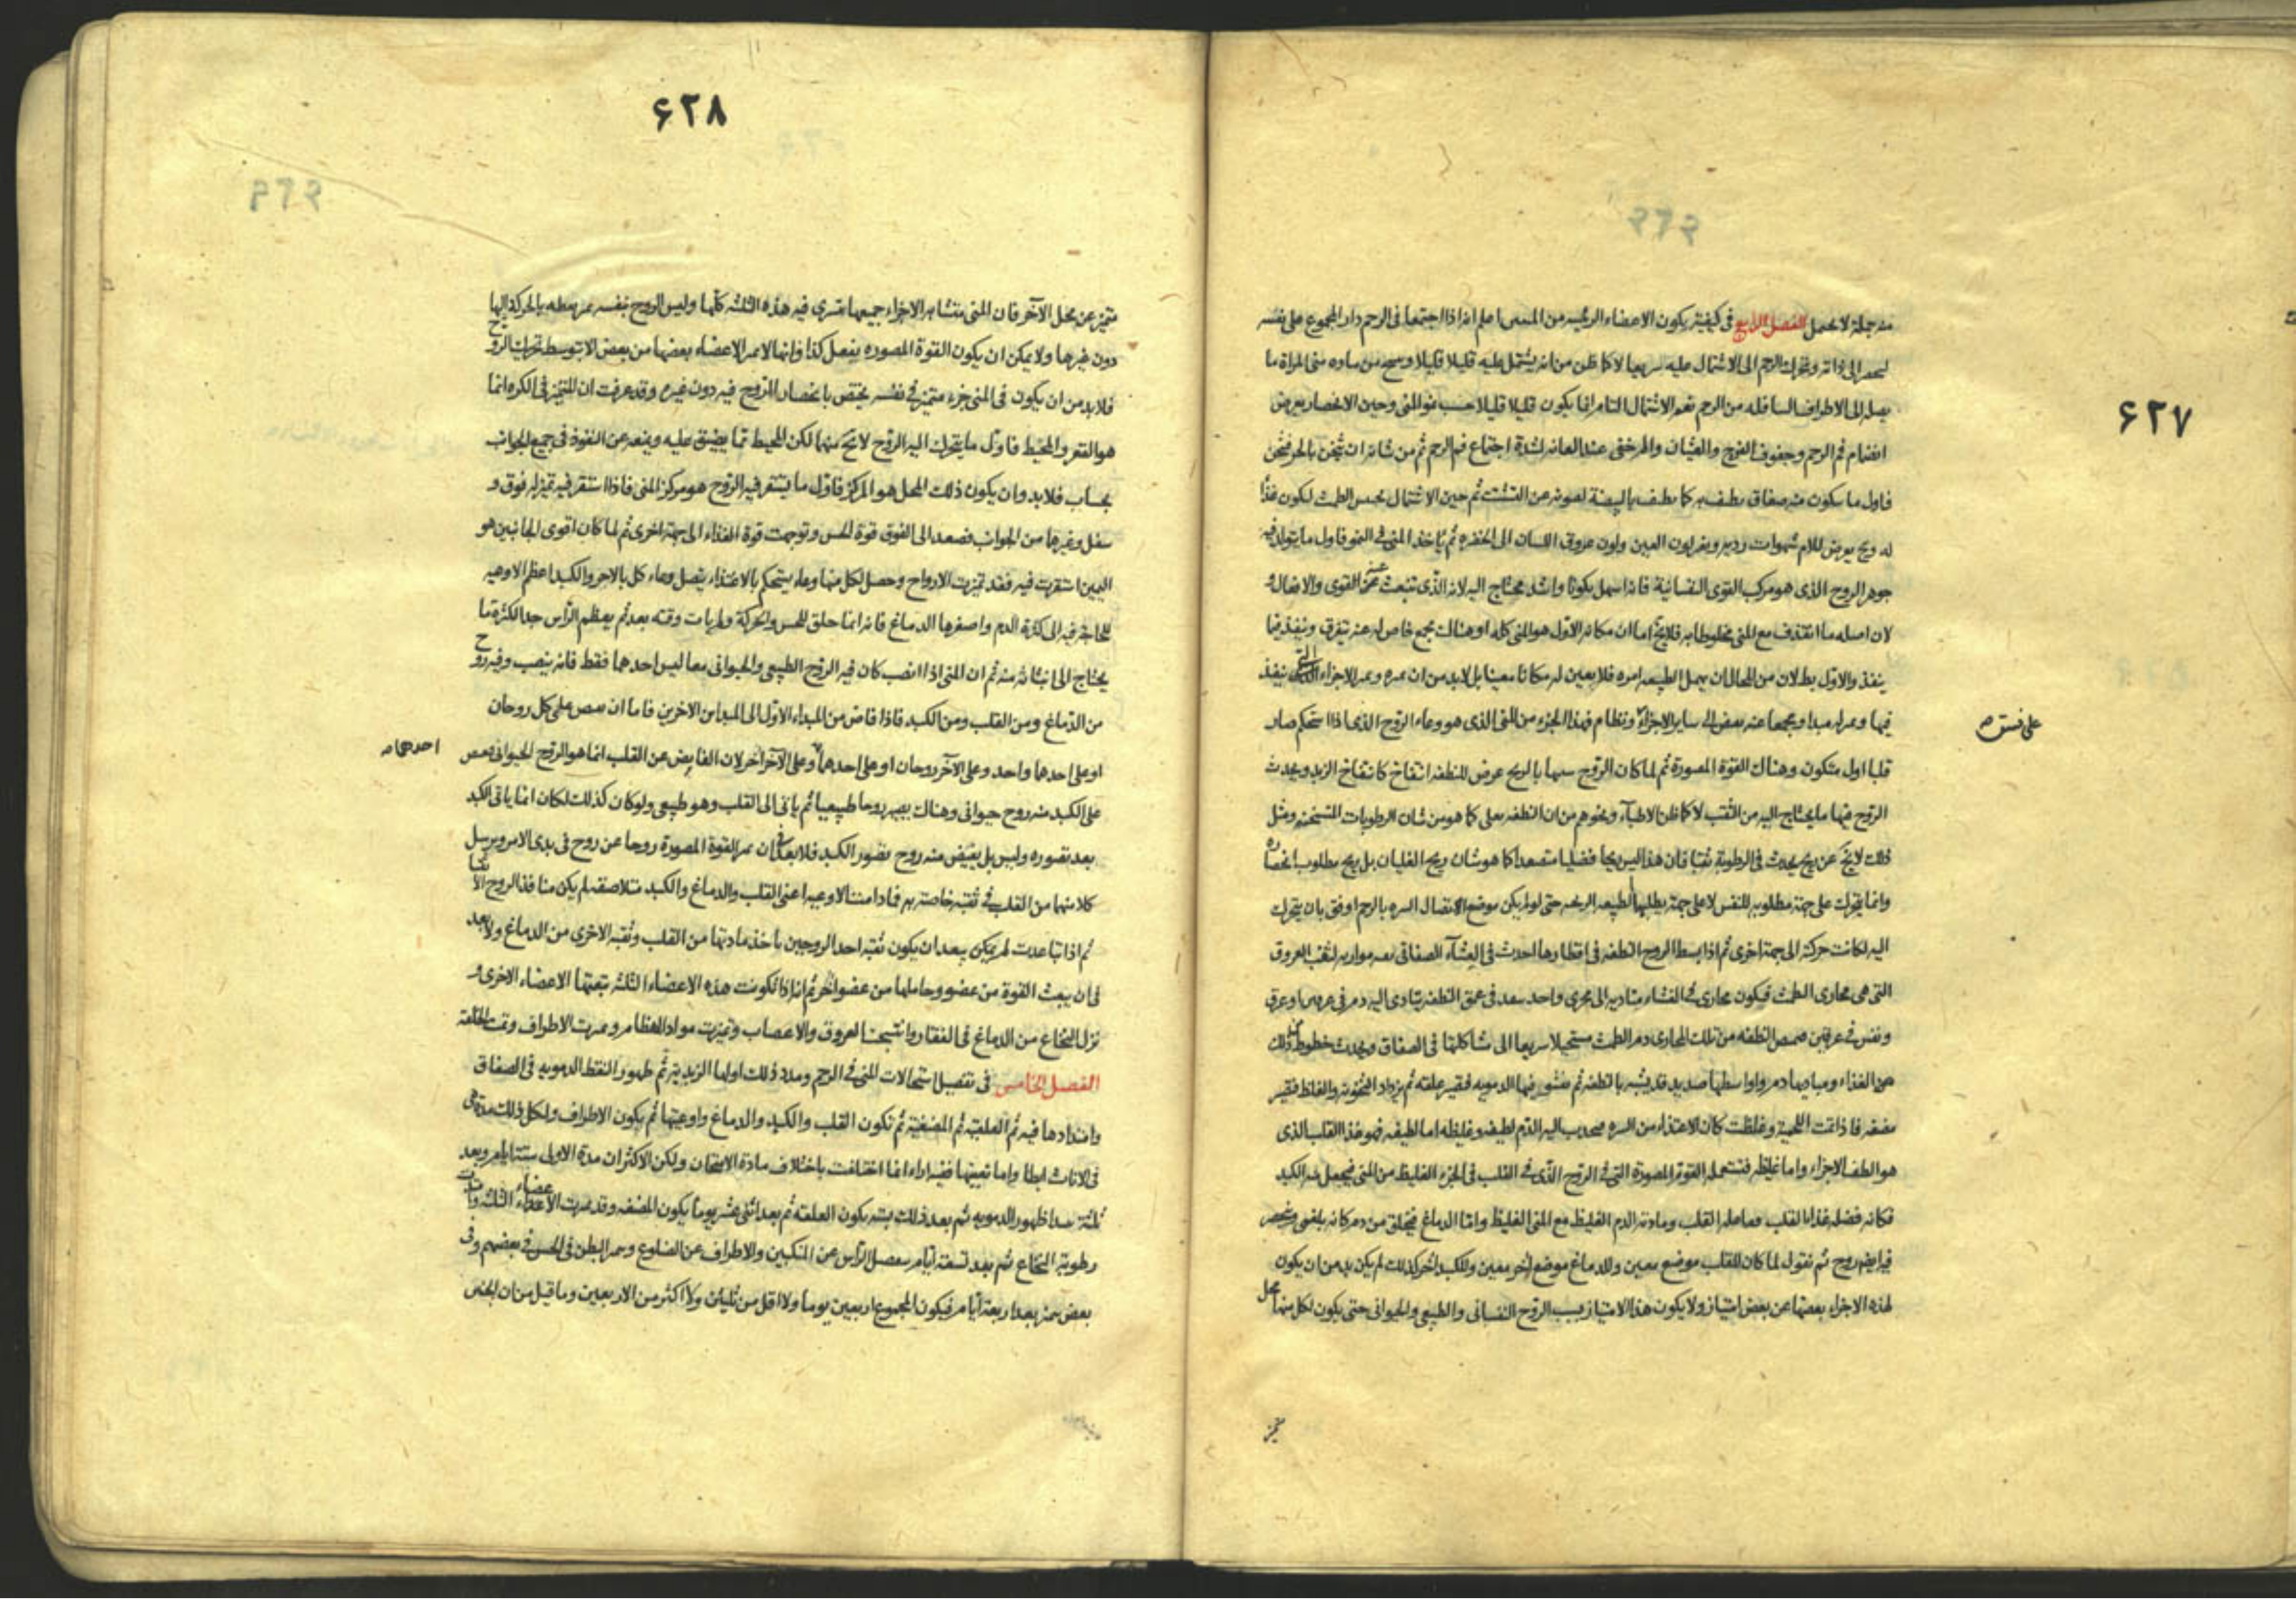 ۶۲۷
منه جملة لا يحمل الفصل الرابع في كيفية يكون الاعضاء الرئيسه من المنيين اعلم انه اذا اجتمعا في الرحم دار المجموع على نفسه
الى ذاته وتحرك الرحم الى الاشتمال عليه سريعا لا كما ظن من انه يشتمل عليه قليلا قليلا من ماده منى المراة ما
يصله الى الاطراف السافله من الرحم نعم الاشتمال التام انما يكون قليلا قليلا حسب نمو المنى وحين الانحصار يعرض
انضمام فم الرحم وجفوف الفرج والغثيان والم خفى عند العانه لشدة اجتماع فم الرحم ثم من شانه ان يثخن بالحر فيثخن
فاول ما يتكون منه صفاق يطيف به كما يطيف بالبيضة لصونه عن التشتت ثم حين الاشتمال يحبس الطمث ليكون غذا
له وح يعرض للام شهوات رديه ويغير لون العين ولون عروق اللسان الى الخضره ثم ياخذ المنى في النمو فاول ما يتولد فيه
جوهر الروح الذى هو مركب القوى النفسانية فانه اسهل تكونا واشد محتاج اليه لانه الذى تنبعث عنه القوى والافعال و
لان اصله ما انقذف مع المنى مخلوطا به فلا يخ اما ان مكانه الاول هو المنى كله او هناك مجمع خاص له عنه تتفرق وينفذ فيما
ينفذ والاول بطلان من المحال ان يهمل الطبيعه امره فلا يعين له مكانا معينا بل لابد من ان الاجزاء التى ينفذ
فيها مبدا ومجمعا عنه يفيض الى ساير الاجزاء ونظام فهذا الجزء من المنى الذى هو وعاء الروح الذى اذا استحكم صار
على نسق
قلبا اول متكون وهناك القوة المصورة ثم لما كان الروح شبيها بالريح عرض للنطفه انتفاخ كانتفاخ الزبد ويحدث
الروح فيها ما يحتاج اليه من الثقب لا كما ظن الاطباء ونحوهم من ان النطفه تغلى كما هو من شان الرطوبات المتسخنه ومثل
ذلك لا يخ عن ريح يحدث في الرطوبة ثقبا فان هذا ليس ريحا فضليا متصعدا كما هو شان ريح الغليان بل ريح مطلوب انحصاره
وانما يتحرك على جهة مطلوبه للنفس لا على جهة يطلبها الطبيعه الريحيه حتى لو لم يكن موضع الاتصال السره بالرحم اوفق بان يتحرك
اليه لكانت حركته الى جهة اخرى ثم اذا بسط الروح النطفه في اقطارها احدث في الغشاء الصفاقى ثقبه موازيه لثقب العروق
التى هى مجارى الطمث فيكون مجارى في الغشاء متاديه الى مجرى واحد ينفذ في عمق النطفه يتادى اليه دم في عرق او عرق
ونفس في عرقين النطفه من تلك المجارى دم الطمث مستحيلا سريعا الى مشاكلتها في الصفاق ويحدث خطوط من ذلك
من الغذاء ومباديها دم واواسطها صديد قد يشبه بالنطفه ثم ينتشر فيها الدمويه فيصير علقه ثم يزداد الثخونه والغلظ فيصير
مضغه فاذا تمت اللحمية وغلظت كان الاغتذاء من السره فيجذب اليه الدم لطيفه وغليظه اما لطيفه فهو غذاء القلب الذى
هو الطف الاجزاء واما غليظه فتستعمله القوة المصورة التى في الروح الذى في القلب في الجزء الغليظ من المنى فيجعل منه الكبد
فكانه فضله غذاء القلب ومادته الدم الغليظ مع المنى الغليظ واما الدماغ فيخلق من دم كانه بلغمى وينحصر
فيه ايضا روح ثم نقول لما كان للقلب موضع معين وللدماغ موضع اخر معين وللكبد اخر كذلك لم يكن بد من ان يكون
لهذه الاجزاء بعضها عن بعض امتياز ولا يكون هذا الامتياز بسبب الروح النفسانى والطبيعى والحيوانى حتى يكون لكل منها محل
متميز
۶۲۸
متميز عن محل الآخر فان المنى متشابه الاجزاء جميعها تسرى فيه هذه الثلثه كلها وليس الروح بنفسه بالحركة اليها
دون غيرها ولا يمكن ان يكون القوة المصوره يفعل كذا فانها الاعضاء بعضها من بعض الا بتوسط تحريك الروح
فلا بد من ان يكون في المنى جزء متميز في نفسه يختص بانحصار الروح فيه دون غيره وقد عرفت ان المتميز في الكره انما
هو القعر والمحيط فاول ما يتحرك اليه الروح لا يخ منهما لكن المحيط مما يضيق عليه ويمنعه عن النفوذ في جميع الجوانب
بحساب فلا بد وان يكون ذلك المحل هو المركز فاول ما يستقر فيه الروح هو مركز المنى فاذا استقر فيه تميز له فوق و
سفل وغيرها من الجوانب فصعد الى الفوق قوة الحس وتوجهت قوة الغذاء الى جهة اخرى ثم لما كان اقوى الجانبين هو
اليمين استقرت فيه فقد تميزت الارواح وحصل لكل منها وعاء يستحكم بالاغتذاء يتصل وعاء كل بالاخر والكبد اعظم الاوعيه
للحاجة فيه الى كثرة الدم واصغرها الدماغ فانه انما خلق للحس والحركة ولم يات وقته بعد ثم يعظم الراس جدا لكثرة ما
يحتاج الى انبثاثه منه ثم ان المنى اذا انصب كان فيه الروح الطبيعى والحيوانى معا ليس احدهما فقط فانه ينصب وفيه روح
من الدماغ ومن القلب ومن الكبد فاذا فاض من المبداء الاول الى المبداين الاخرين فاما ان يفيض على كل روحان
او على احدهما واحد وعلى الآخر روحان او على احدهما وعلى الآخر آخر لان الفايض عن القلب انما هو الروح الحيوانى
على الكبد منه روح حيوانى وهناك يصير روحا طبيعيا ثم ياتى الى القلب وهو طبيعى ولو كان كذلك لكان انما ياتى الكبد
بعد تصوره وليس بل يفيض منه روح بصور الكبد فلا بعد في ان القوة المصورة روحا عن روح في بدى الامر ويرسل
كلا منهما من القلب في ثقبه خاصة به فما دامت الاوعيه اعنى القلب والدماغ والكبد متلاصقه لم يكن منافذ الروح
ثم اذا تباعدت لم يمكن بعد ان يكون ثقبه احد الروحين ياخذ مادتها من القلب وثقبه الاخرى من الدماغ ولا بعد
في ان يبعث القوة من عضو وحاملها من عضو آخر ثم انه اذا تكونت هذه الاعضاء الثلثه تبعتها الاعضاء الاخرى و
نزل النخاع من الدماغ في الفقار وانتسجت العروق والاعصاب وتميزت مواد العظام وميزت الاطراف وتمت الخلقة
الفصل الخامس في تفصيل استحالات المنى في الرحم ومدد ذلك اولها الزبدية ثم ظهور النقط الدمويه في الصفاق
وامتدادها فيه ثم العلقية ثم المضغية ثم تكون القلب والكبد والدماغ واوعيتها ثم يكون الاطراف ولكل ذلك مدة هى
في الاناث ابطا واما تعيينها ففيه اراء انما اختلفت باختلاف مادة الامتحان ولكن الاكثر ان مدة الاولى ستة ايام وبعد
ثلثة مبدا ظهور الدمويه ثم بعد ذلك بستة يكون العلقة ثم بعد اثنى عشر يوما يكون المضغه وقد ميزت الاعضاء الثلثه
رطوبة النخاع ثم بعد تسعة ايام ينفصل الراس عن المنكبين والاطراف عن الضلوع ويميز البطن في الحس في بعضهم وفى
بعض يميز بعد اربعة ايام فيكون المجموع اربعين يوما ولا اقل من ثلثين ولا اكثر من الاربعين وما قيل من ان الجنين